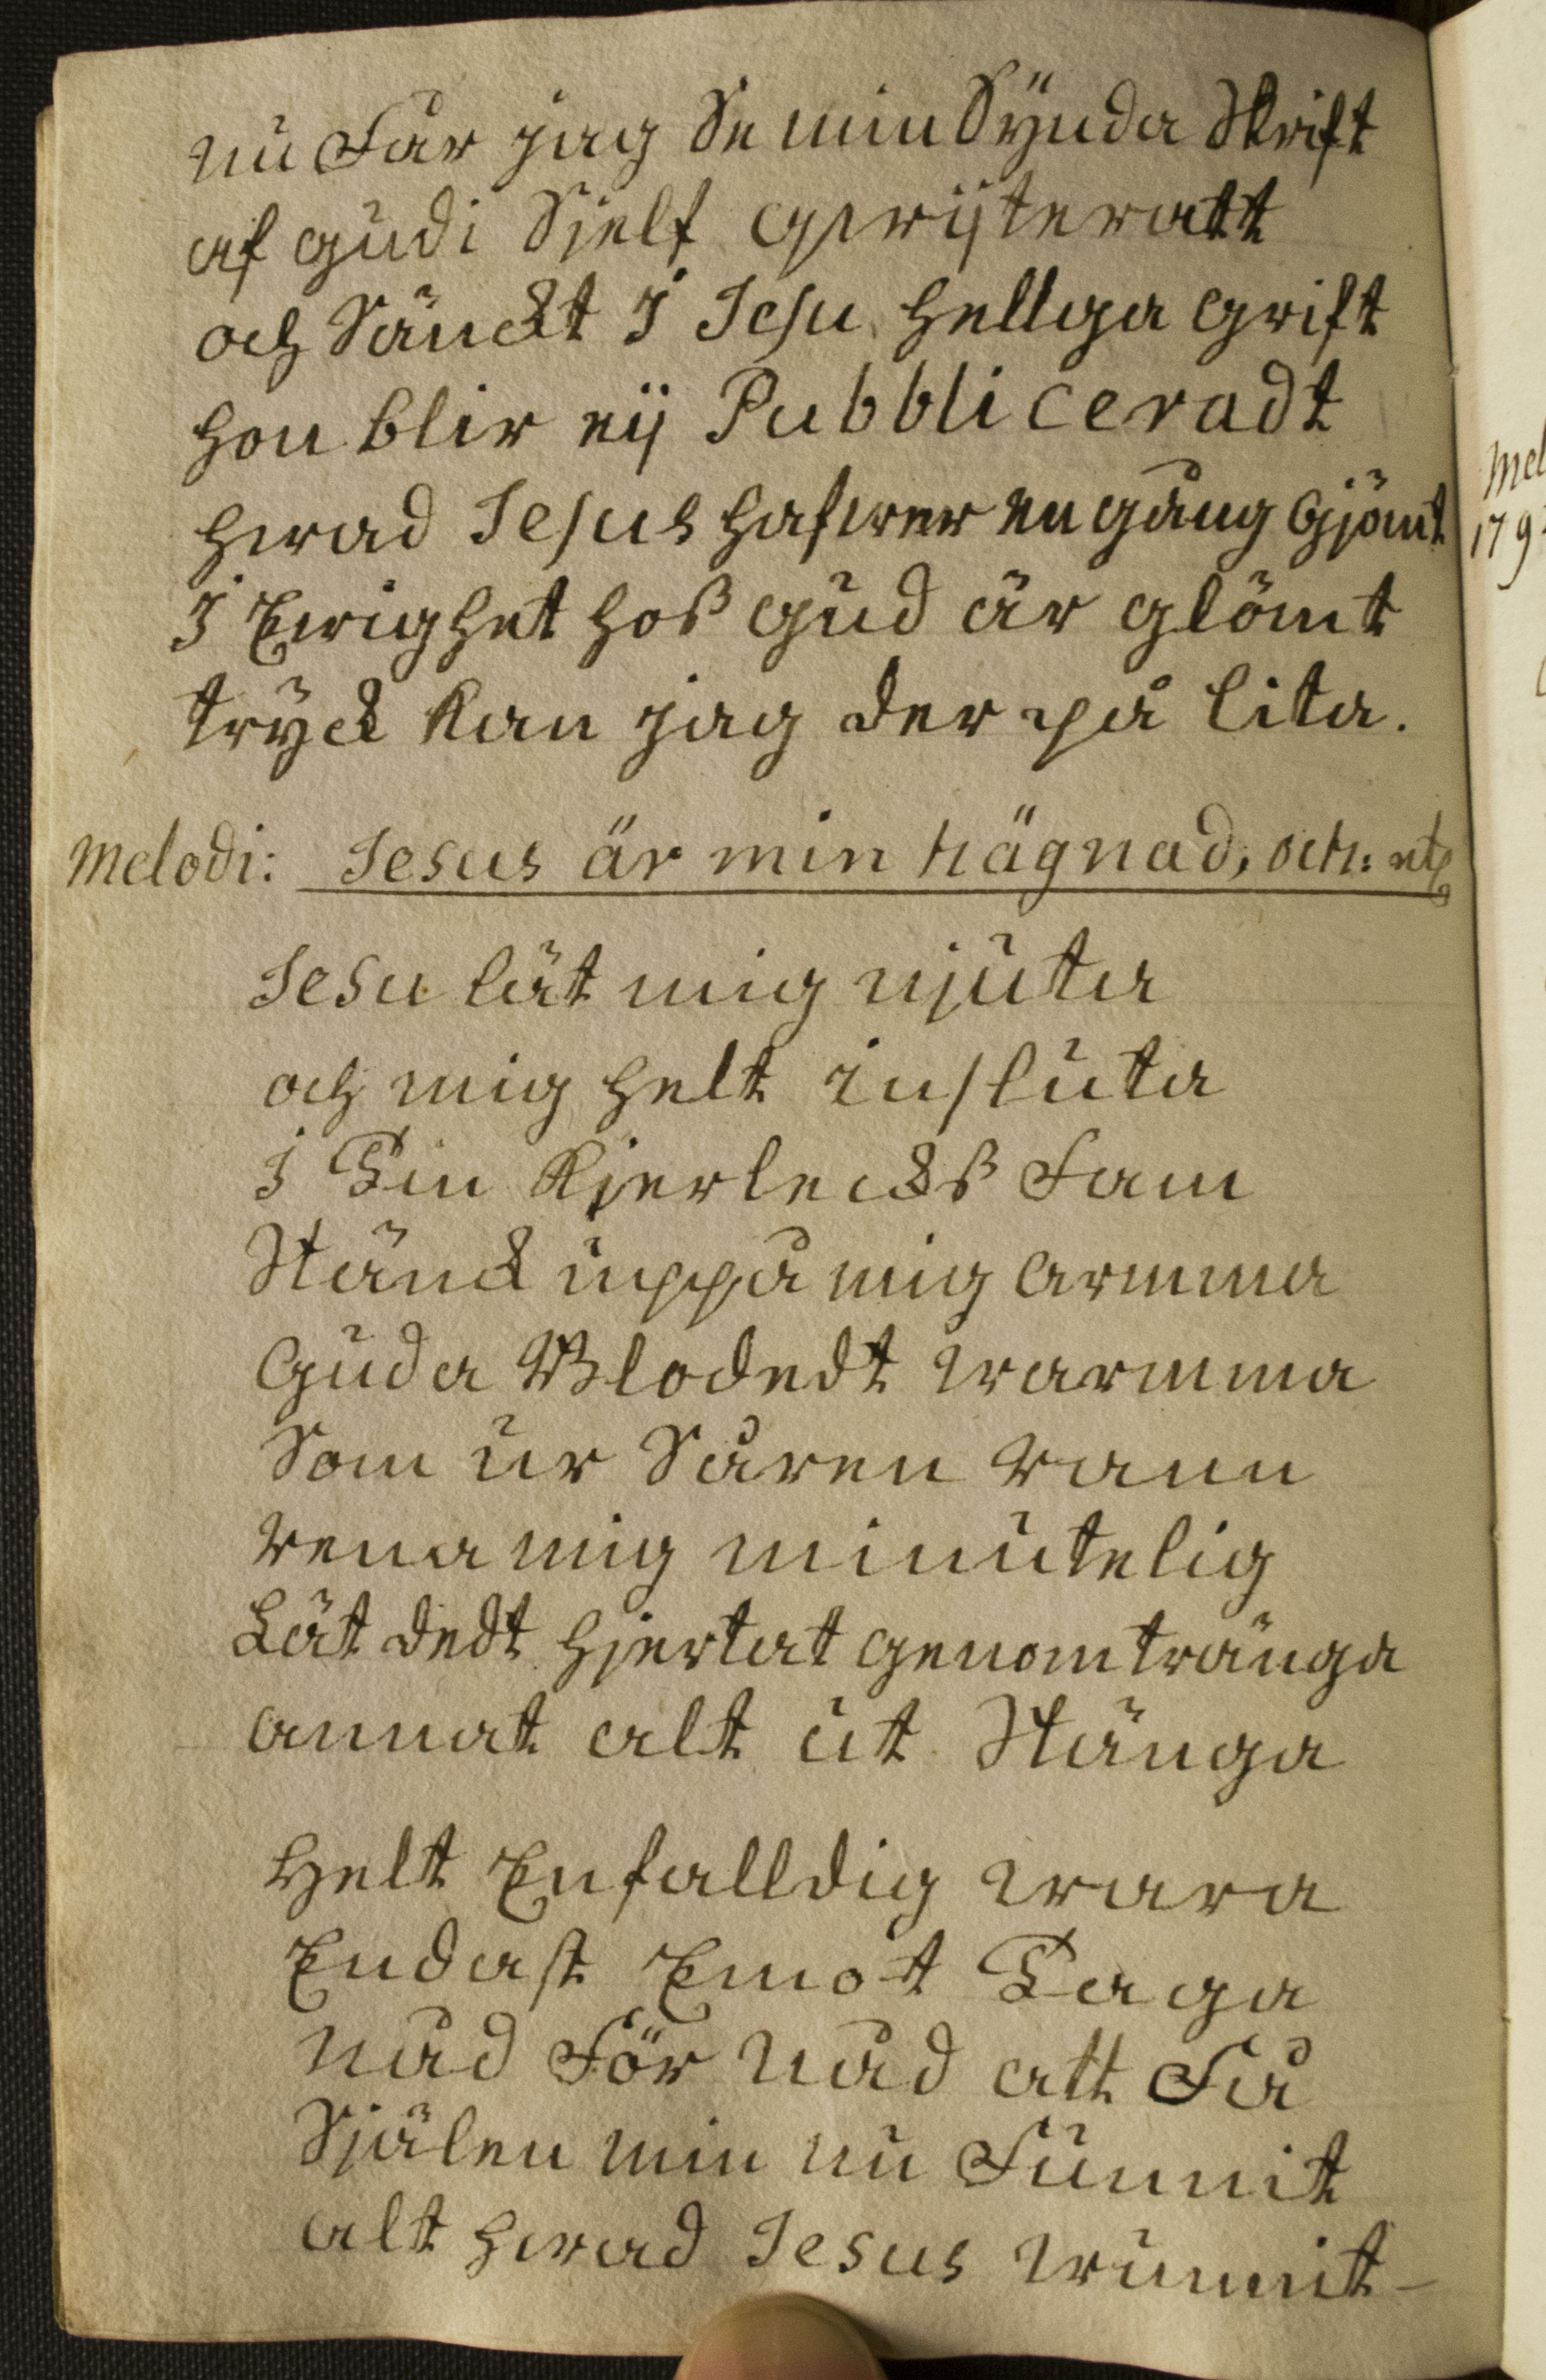 nu Får jag Se min Synda Skrift
af gudi Sjelf qviteratt
och Sänckt I Jesu hellga grift
hon blir ej Pubbliceradt
hwad Jesus hafwer en gång Gjömt
I Ewighet hoß gud är glömt
tryck kan jag der på lita.
Melodi: Jesus är min hägnad, och: etc
Jesu låt mig njuta
och mig helt insluta
I Din Kjerleckß Fam
Stänck uppå mig armma
Guda Blodedt warmma
Som ur Såren rann
rena mig minutelig
Låt dedt hjertat genomtränga
annat alt ut Stänga
Helt Enfalldig wara
Endast Emot Taga
nåd För nåd att Få
Själen min nu Funnit
alt hwad Jesus wunnit-
Mel
179